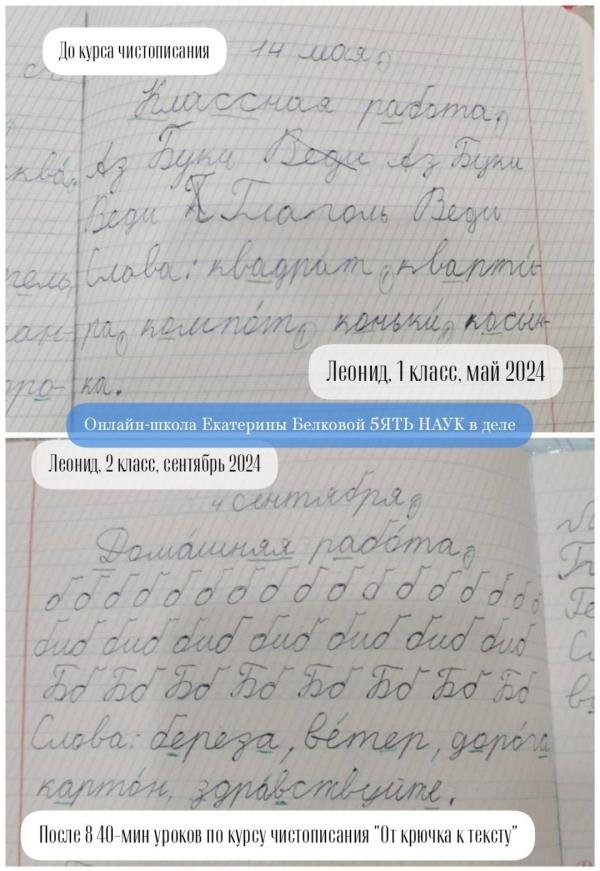 До курса чистописания
14 мая.
Классная работа.
ква
Аз Буки Веди Аз Буки
Веди Глаголь Веди
тель
Слова: квадра́т, кварти́-
ан-
ра, компо́т, коньки́, косы́н-
ро-
ка.
Леонид, 1 класс, май 2024
Онлайн-школа Екатерины Белковой 5ЯТЬ НАУК в деле
Леонид, 2 класс, сентябрь 2024
4 сентября.
Дома́шняя рабо́та.
б б б б б б б б б б б б б б б б
биб биб биб биб биб биб биб
Бб Бб Бб Бб Бб Бб Бб Бб
Слова: берёза, ве́тер, доро́га
карто́н, здра́вствуйте.
После 8 40-мин уроков по курсу чистописания "От крючка к тексту"